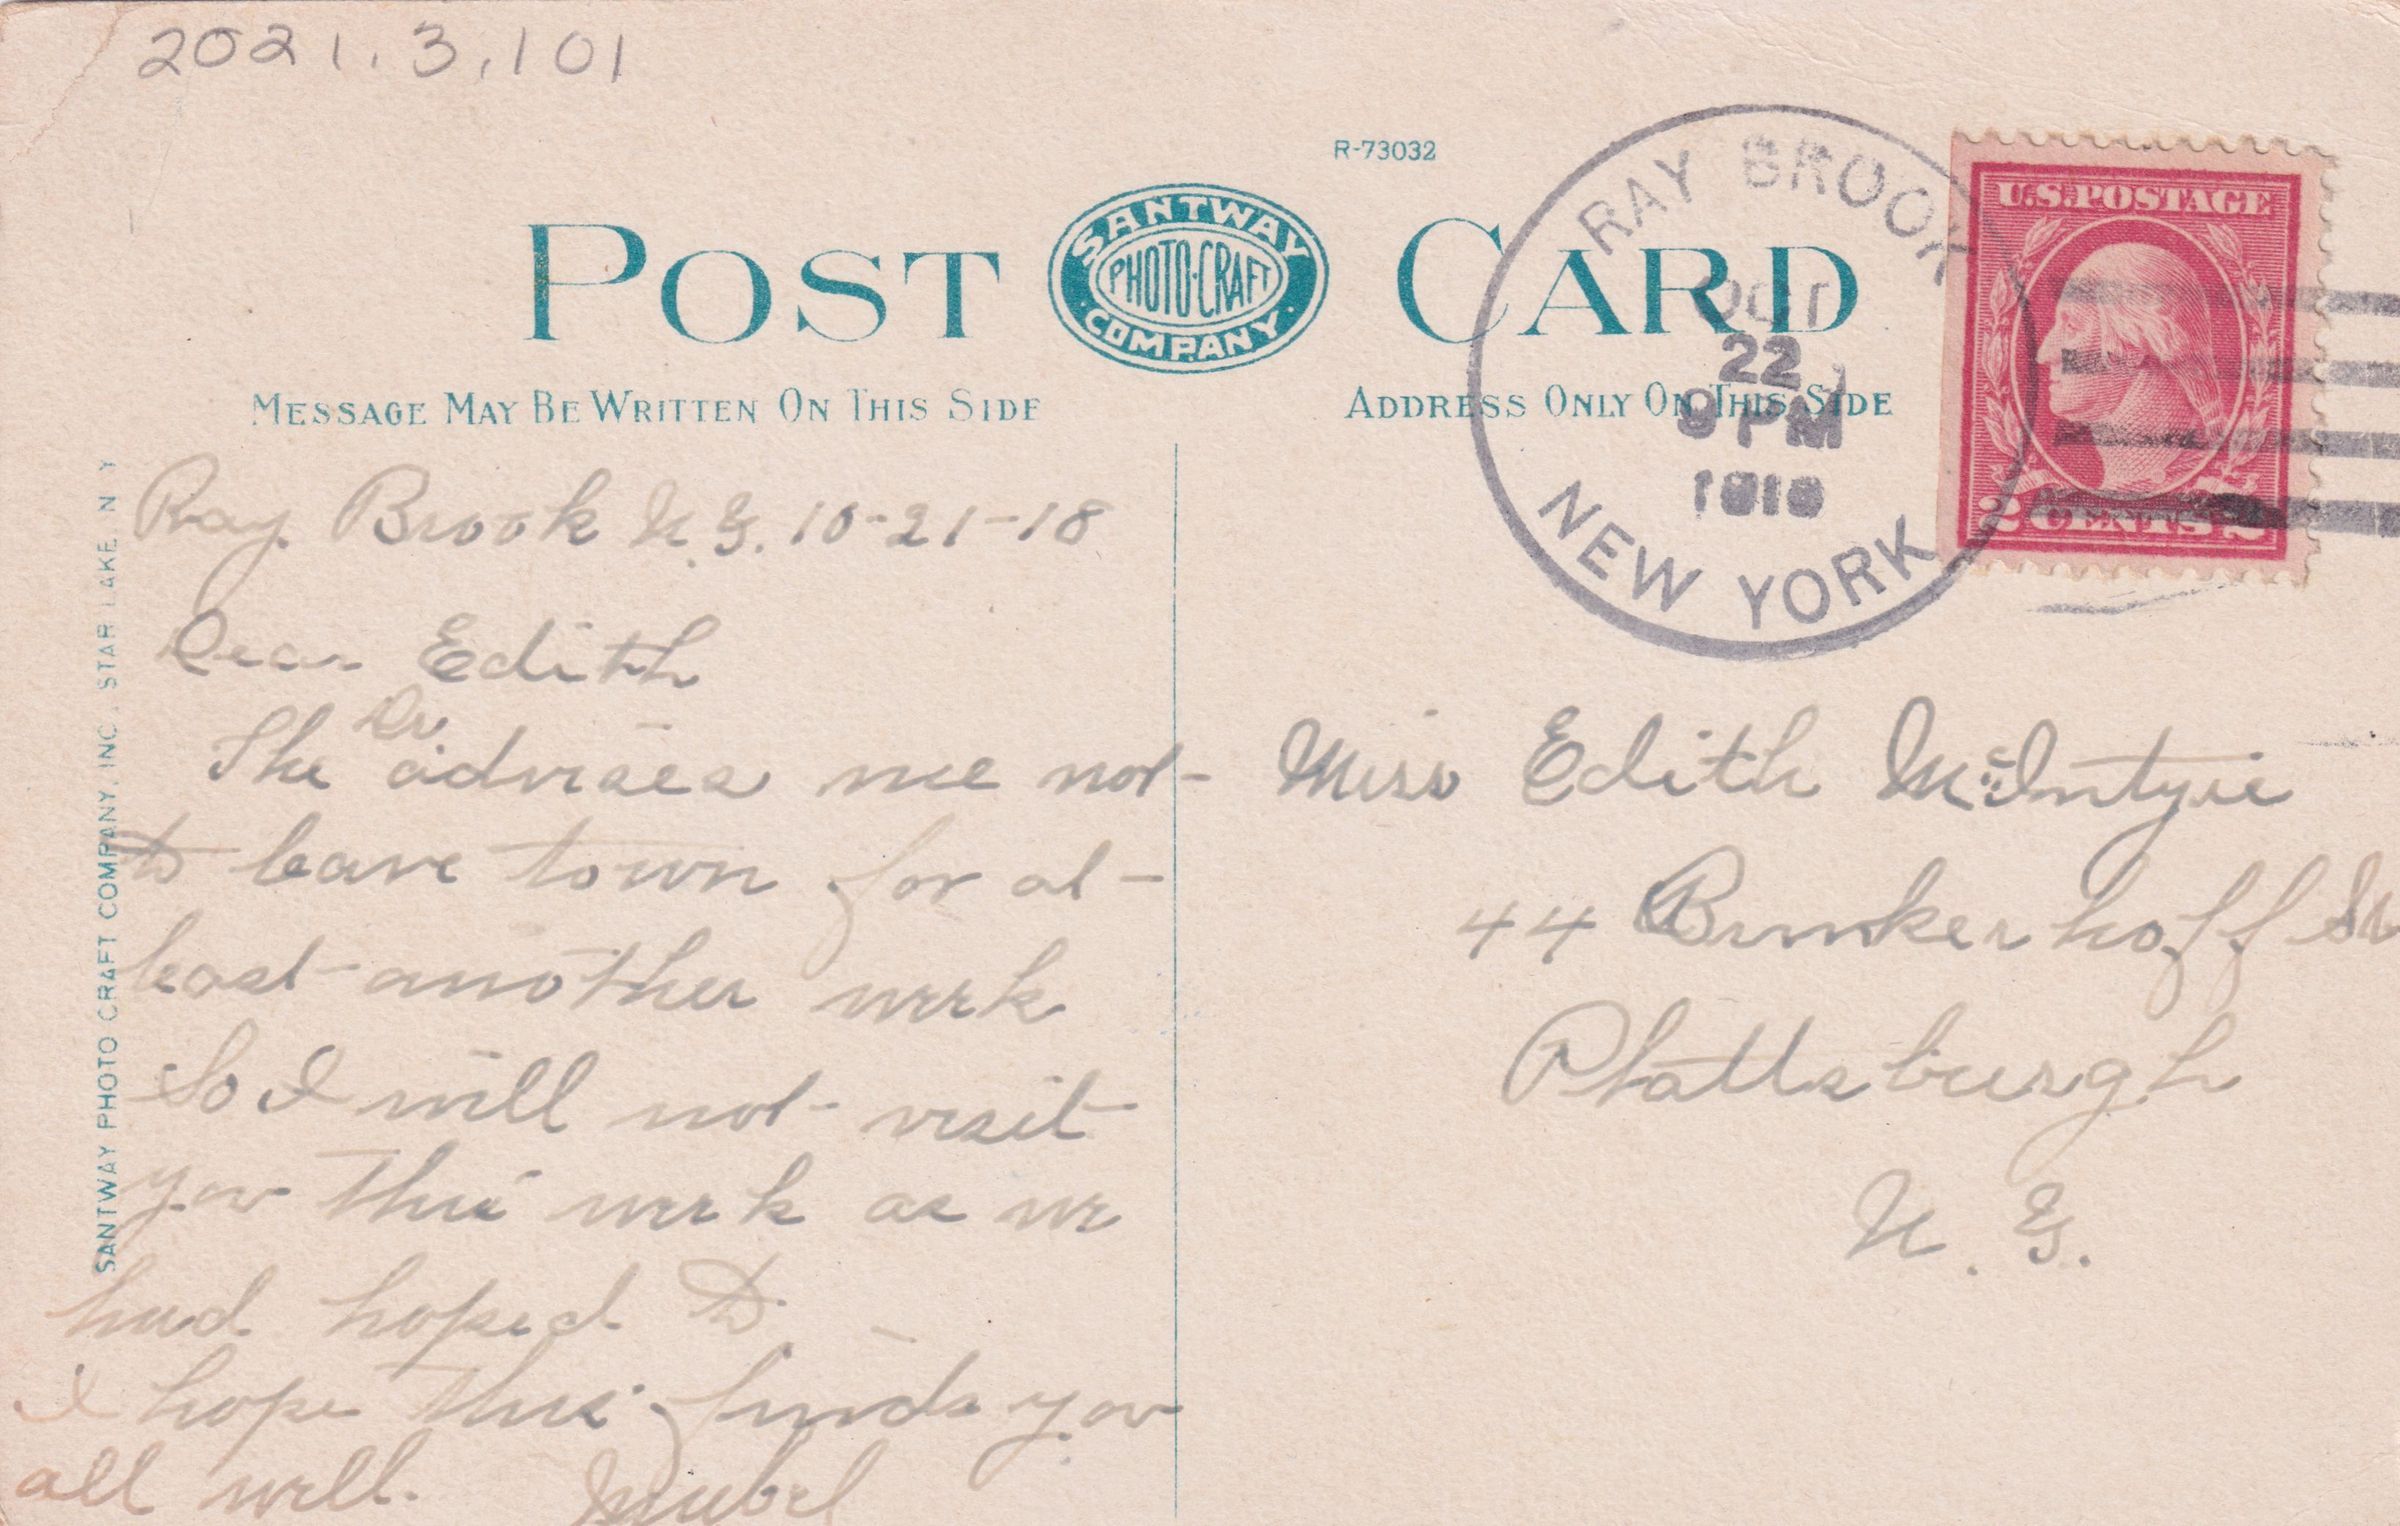 2021.3.101
R-73032
POST CARD
SANTWAY
PHOTO-CRAFT
COMPANY
MESSAGE MAY BE WRITTEN ON THIS SIDE
ADDRESS ONLY ON THIS SIDE
RAY BROOK
OCT
22
PM
NEW YORK
U.S. POSTAGE
2 CENTS 2
SANTWAY PHOTO CRAFT COMPANY, INC., STAR LAKE, N Y
Ray Brook N.Y. 10-21-18
Dear Edith
The Dr. advises me not
to leave town for at
least another week
So I will not visit
you this week as we
had hoped to.
I hope this finds you
all well. Mabel
Miss Edith McIntyre
44 Brinkerhoff St
Plattsburgh
N.Y.